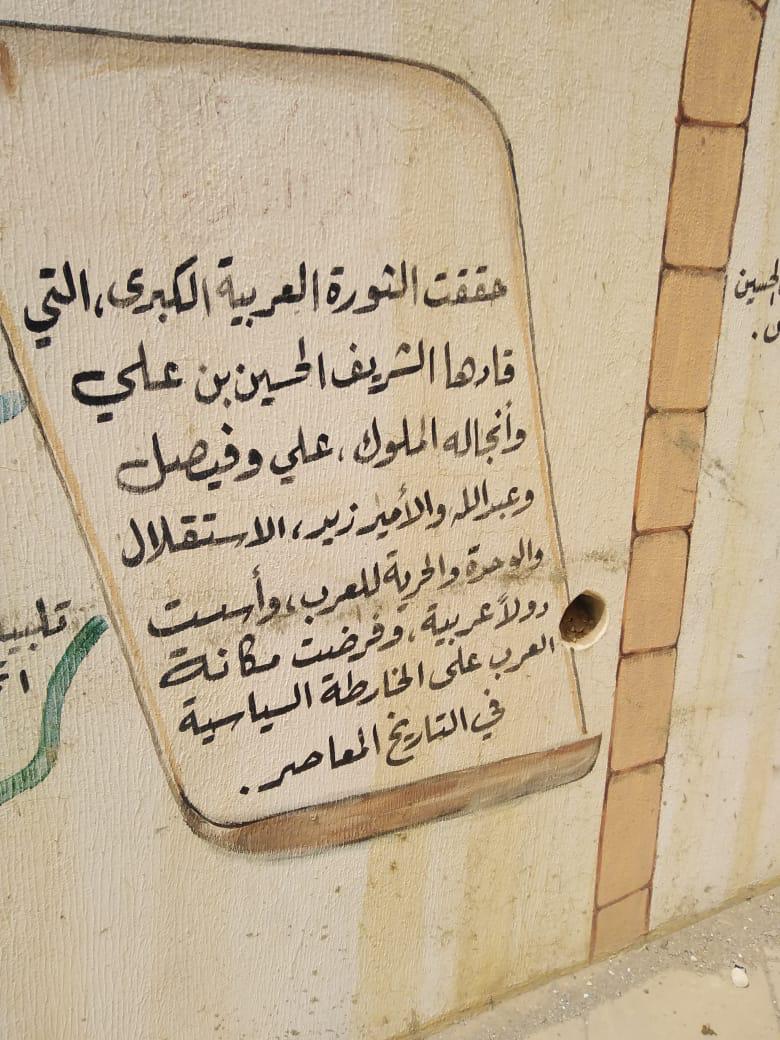 حققت الثورة العربية الكبرى، التي
قادها الشريف الحسين بن علي
وأنجاله الملوك، علي وفيصل
وعبدالله والأمير زيد، الاستقلال
والوحدة والحرية للعرب، وأسست
دولاً عربية، وفرضت مكانة
العرب على الخارطة السياسية
في التاريخ المعاصر.
الحسين